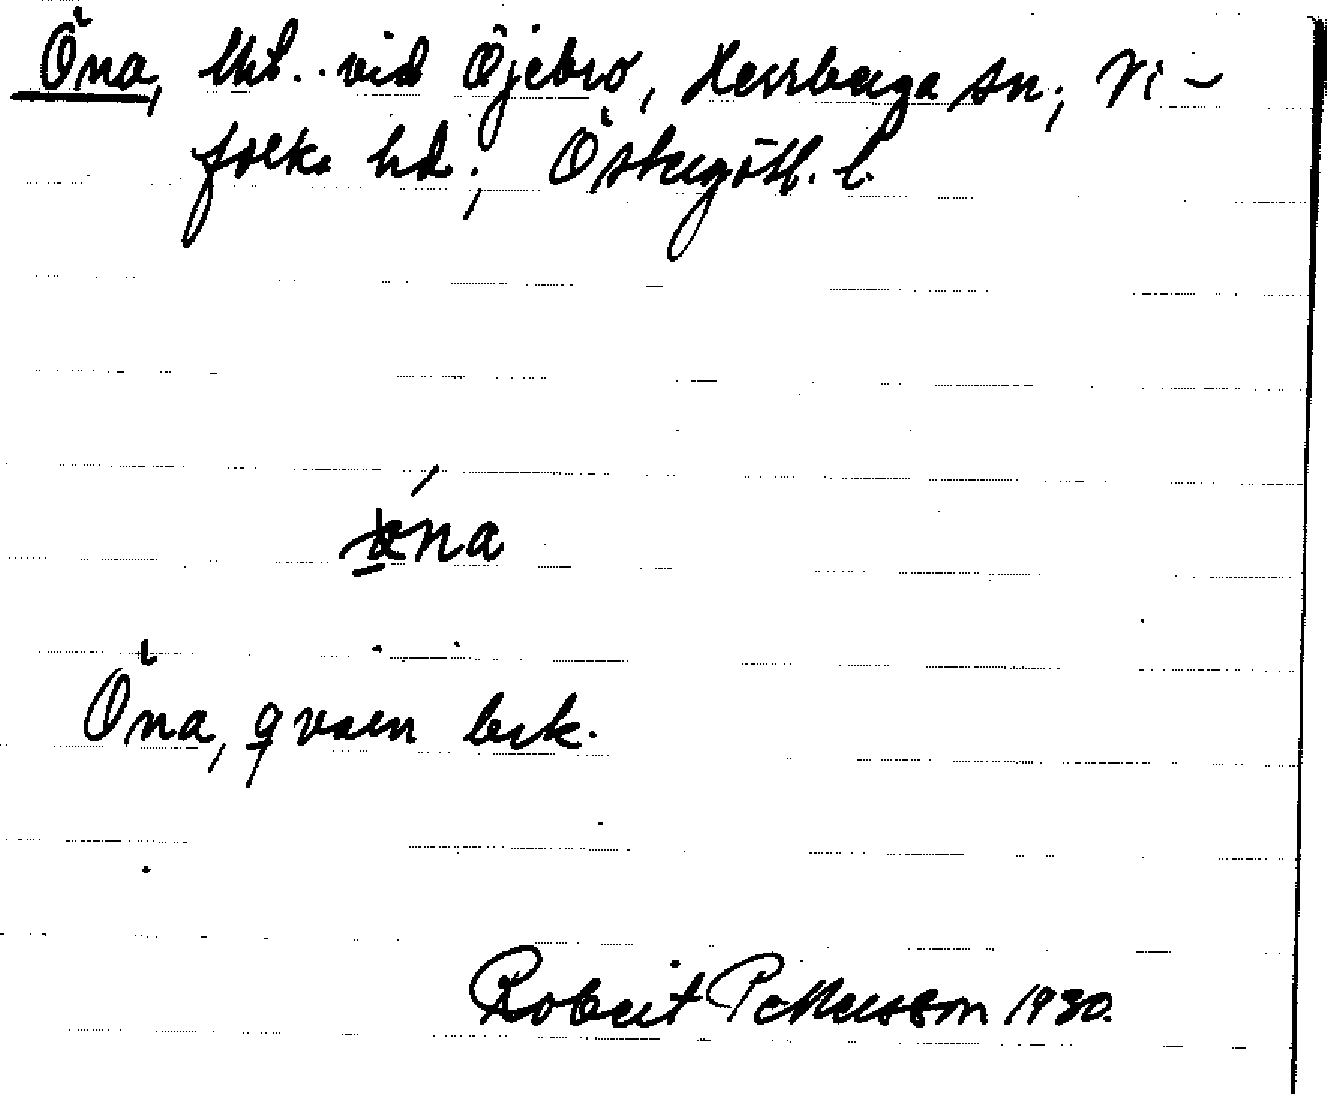 Öna, lht. vid Öjebro, Herrberga sn; Vi-
folka hd; Östergötl. l.
Öna, qvarn bek.
Robert Pettersson 1930.